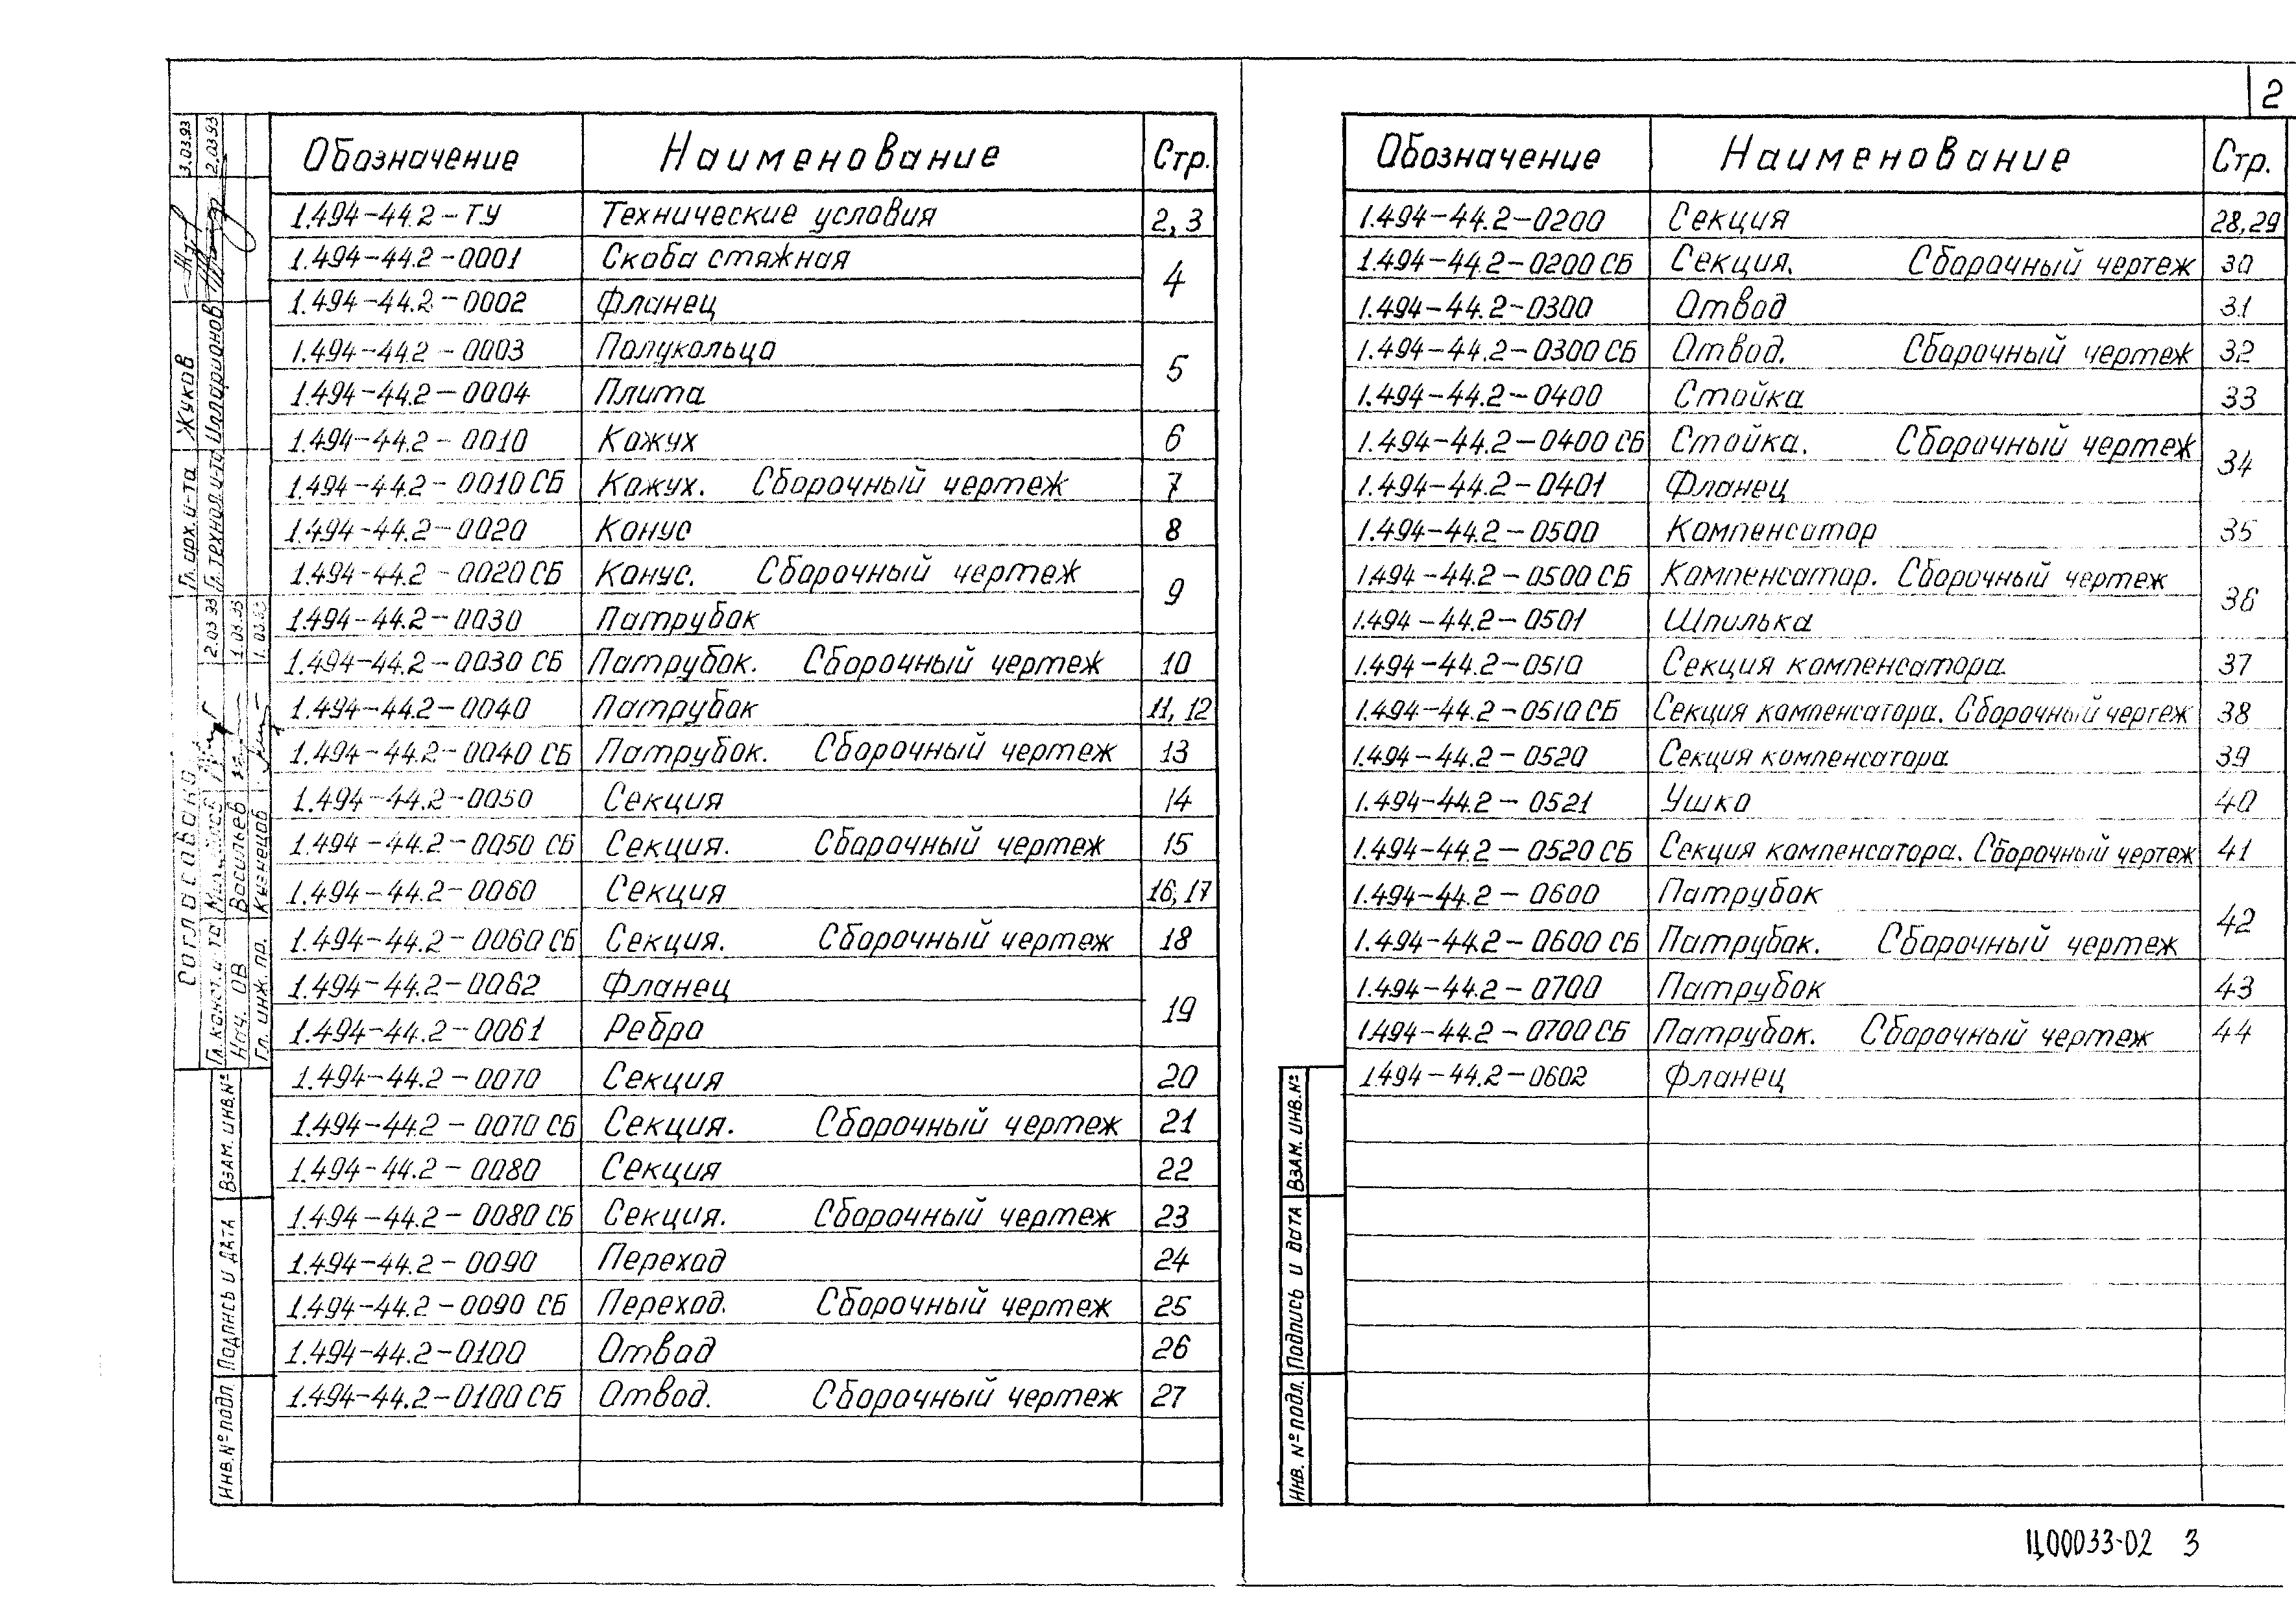 2
Обозначение Наименование Стр.
1.494-44.2-ТУ Технические условия 2,3
1.494-44.2-0001 Скоба стяжная 4
1.494-44.2-0002 Фланец
1.494-44.2-0003 Полукольцо 5
1.494-44.2-0004 Плита
1.494-44.2-0010 Кожух 6
1.494-44.2-0010 СБ Кожух. Сборочный чертеж 7
1.494-44.2-0020 Конус 8
1.494-44.2-0020 СБ Конус. Сборочный чертеж 9
1.494-44.2-0030 Патрубок
1.494-44.2-0030 СБ Патрубок. Сборочный чертеж 10
1.494-44.2-0040 Патрубок 11, 12
1.494-44.2-0040 СБ Патрубок. Сборочный чертеж 13
1.494-44.2-0050 Секция 14
1.494-44.2-0050 СБ Секция. Сборочный чертеж 15
1.494-44.2-0060 Секция 16, 17
1.494-44.2-0060 СБ Секция. Сборочный чертеж 18
1.494-44.2-0062 Фланец 19
1.494-44.2-0061 Ребро
1.494-44.2-0070 Секция 20
1.494-44.2-0070 СБ Секция. Сборочный чертеж 21
1.494-44.2-0080 Секция 22
1.494-44.2-0080 СБ Секция. Сборочный чертеж 23
1.494-44.2-0090 Переход 24
1.494-44.2-0090 СБ Переход. Сборочный чертеж 25
1.494-44.2-0100 Отвод 26
1.494-44.2-0100 СБ Отвод. Сборочный чертеж 27
Обозначение Наименование Стр.
1.494-44.2-0200 Секция 28,29
1.494-44.2-0200 СБ Секция. Сборочный чертеж 30
1.494-44.2-0300 Отвод 31
1.494-44.2-0300 СБ Отвод. Сборочный чертеж 32
1.494-44.2-0400 Стойка 33
1.494-44.2-0400 СБ Стойка. Сборочный чертеж 34
1.494-44.2-0401 Фланец
1.494-44.2-0500 Компенсатор 35
1.494-44.2-0500 СБ Компенсатор. Сборочный чертеж 36
1.494-44.2-0501 Шпилька
1.494-44.2-0510 Секция компенсатора. 37
1.494-44.2-0510 СБ Секция компенсатора. Сборочный чертеж 38
1.494-44.2-0520 Секция компенсатора 39
1.494-44.2-0521 Ушко 40
1.494-44.2-0520 СБ Секция компенсатора. Сборочный чертеж 41
1.494-44.2-0600 Патрубок 42
1.494-44.2-0600 СБ Патрубок. Сборочный чертеж
1.494-44.2-0700 Патрубок 43
1.494-44.2-0700 СБ Патрубок. Сборочный чертеж 44
1.494-44.2-0602 Фланец
Согласовано
Гл. арх. и-та Жуков 3.03.93
Гл. технол. и-та Илларионов 2.03.93
Гл. конст. и-та 2.03.93
Нач. ОВ Васильев 1.03.93
Гл. инж. пр. Кузнецов 1.03.93
Инв. № подл. Подпись и дата Взам. инв. №
Инв. № подл. Подпись и дата Взам. инв. №
Ц00033-02 3